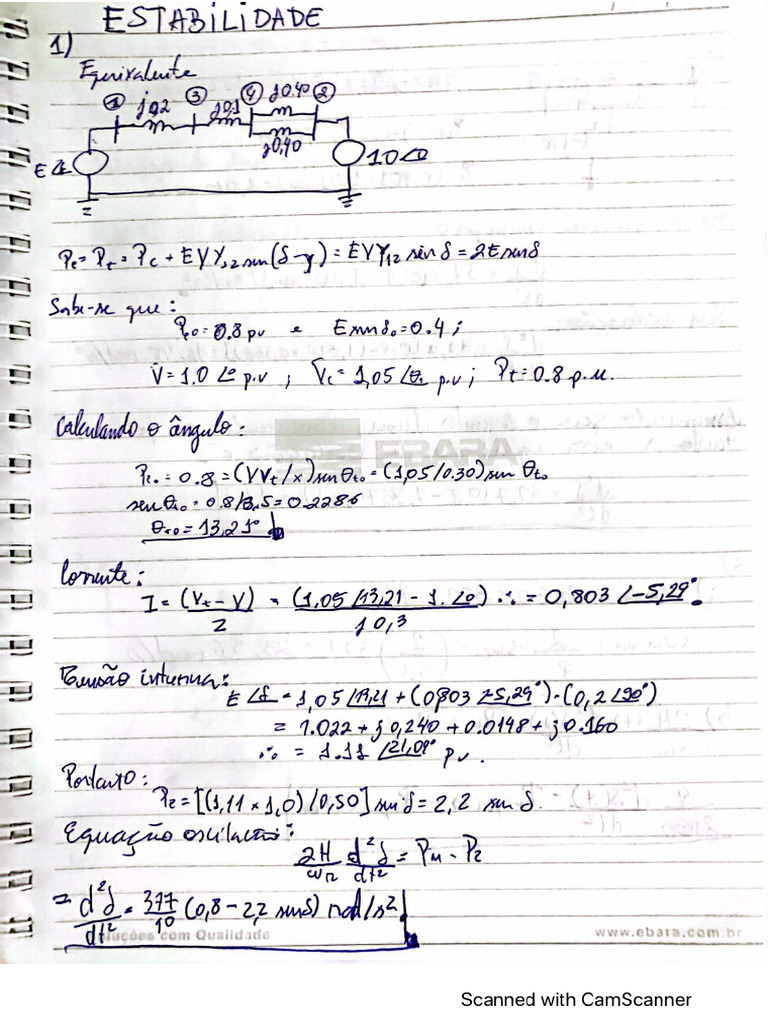 ESTABILIDADE
1)
Equivalente
① j0,2 ③ j0,1 ④ j0.40 ②
j0,40
E∠δ 1,0∠0
Pe = Pt = Pc + EVY12 sen(δ-γ) = EVY12 sin δ = 2E senδ
Sabe-se que:
Pe0 = 0.8 pu e E sen δ0 = 0.4 ;
V = 1.0 ∠0 p.u ; Vt = 1,05 ∠θt p.u ; Pt = 0.8 p.u.
Calculando o ângulo:
EBARA
Pe0 = 0.8 = (VVt/x) sen θt0 = (1,05/0.30) sen θt0
sen θt0 = 0.8/3,5 = 0.2286
θt0 = 13,21°
Corrente:
I = (Vt - V) = (1,05 ∠13,21 - 1.∠0) ∴ = 0,803 ∠-5,29°
Z j0,3
Tensão interna:
E∠δ = 1,05∠13,21 + (0,803 ∠-5,29°)·(0,2∠90°)
= 1.022 + j0,240 + 0.0148 + j0.160
∴ = 1.11 ∠21,09° pu.
Portanto:
Pe = [(1,11 × 1,0) / 0,50] sen δ = 2,2 sen δ
Equação oscilação:
2H d²δ = Pm - Pe
ωR dt²
= d²δ = 377 (0,8 - 2,2 senδ) rad/s²
dt² 10
Soluções com Qualidade www.ebara.com.br
Scanned with CamScanner